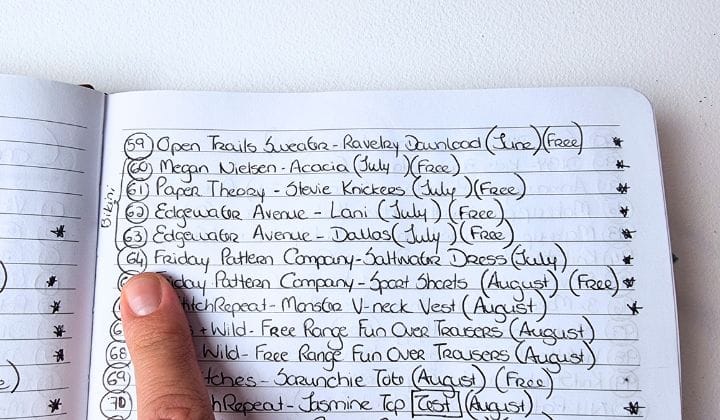 59 Open Trails Sweater - Ravelry Download (June)(Free) *
60 Megan Nielsen - Acacia (July )(Free) *
61 Paper Theory - Stevie Knickers (July )(Free) *
62 Edgewater Avenue - Lani (July ) (Free) *
63 Edgewater Avenue - Dallas (July ) (Free) *
Bikini
64 Friday Pattern Company - Saltwater Dress (July)
day Pattern Company - Sport Shorts (August) (Free) *
Repeat - Monster V-neck Vest (August) *
6 + Wild - Free Range Fun Over Trousers (August)
68 Wild - Free Range Fun Over Trousers (August)
69 tches - Scrunchie Tote (August) (Free)
70 hRepeat - Jasmine Top Test (August)